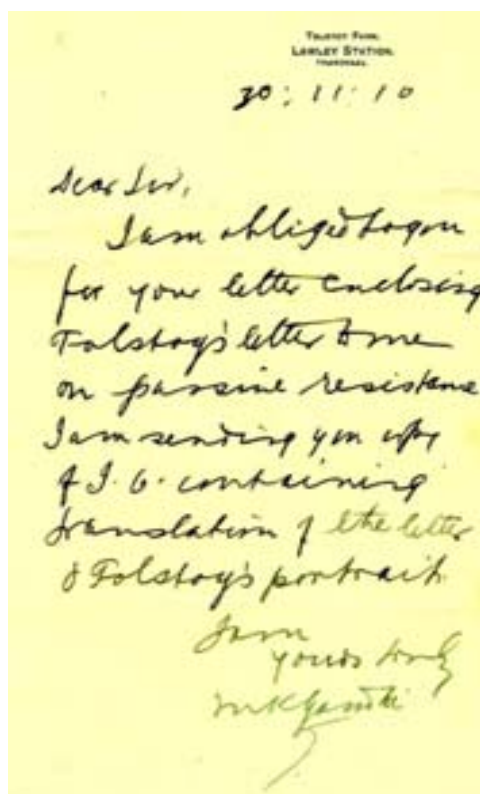 TOLSTOY FARM,
LAWLEY STATION,
TRANSVAAL
30: 11: 10
Dear Sir,
I am obliged to you
for your letter enclosing
Tolstoy's letter to me
on passive resistance
I am sending you copy
of I. O. containing
translation of the letter
& Tolstoy's portrait.
I am
yours truly
MKGandhi